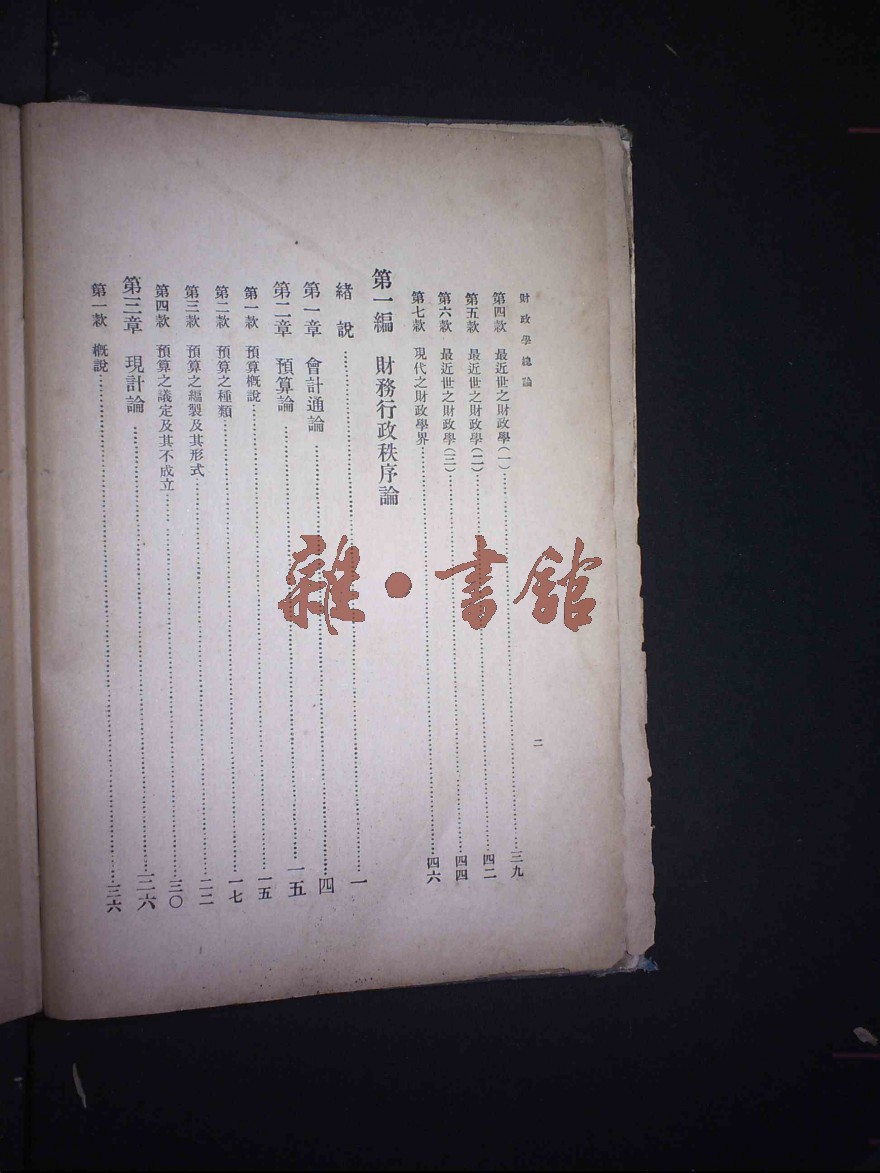 財政學總論
二
第四款　最近世之財政學(一)……三九
第五款　最近世之財政學(二)……四二
第六款　最近世之財政學(三)……四四
第七款　現代之財政學界……四六
第一編　財務行政秩序論
緒說……一
第一章　會計通論……四
第二章　預算論……一五
第一款　預算概說……一五
第二款　預算之種類……一七
第三款　預算之編製及其形式……二二
第四款　預算之議定及其不成立……三〇
第三章　現計論……三六
第一款　概說……三六
雜·書館